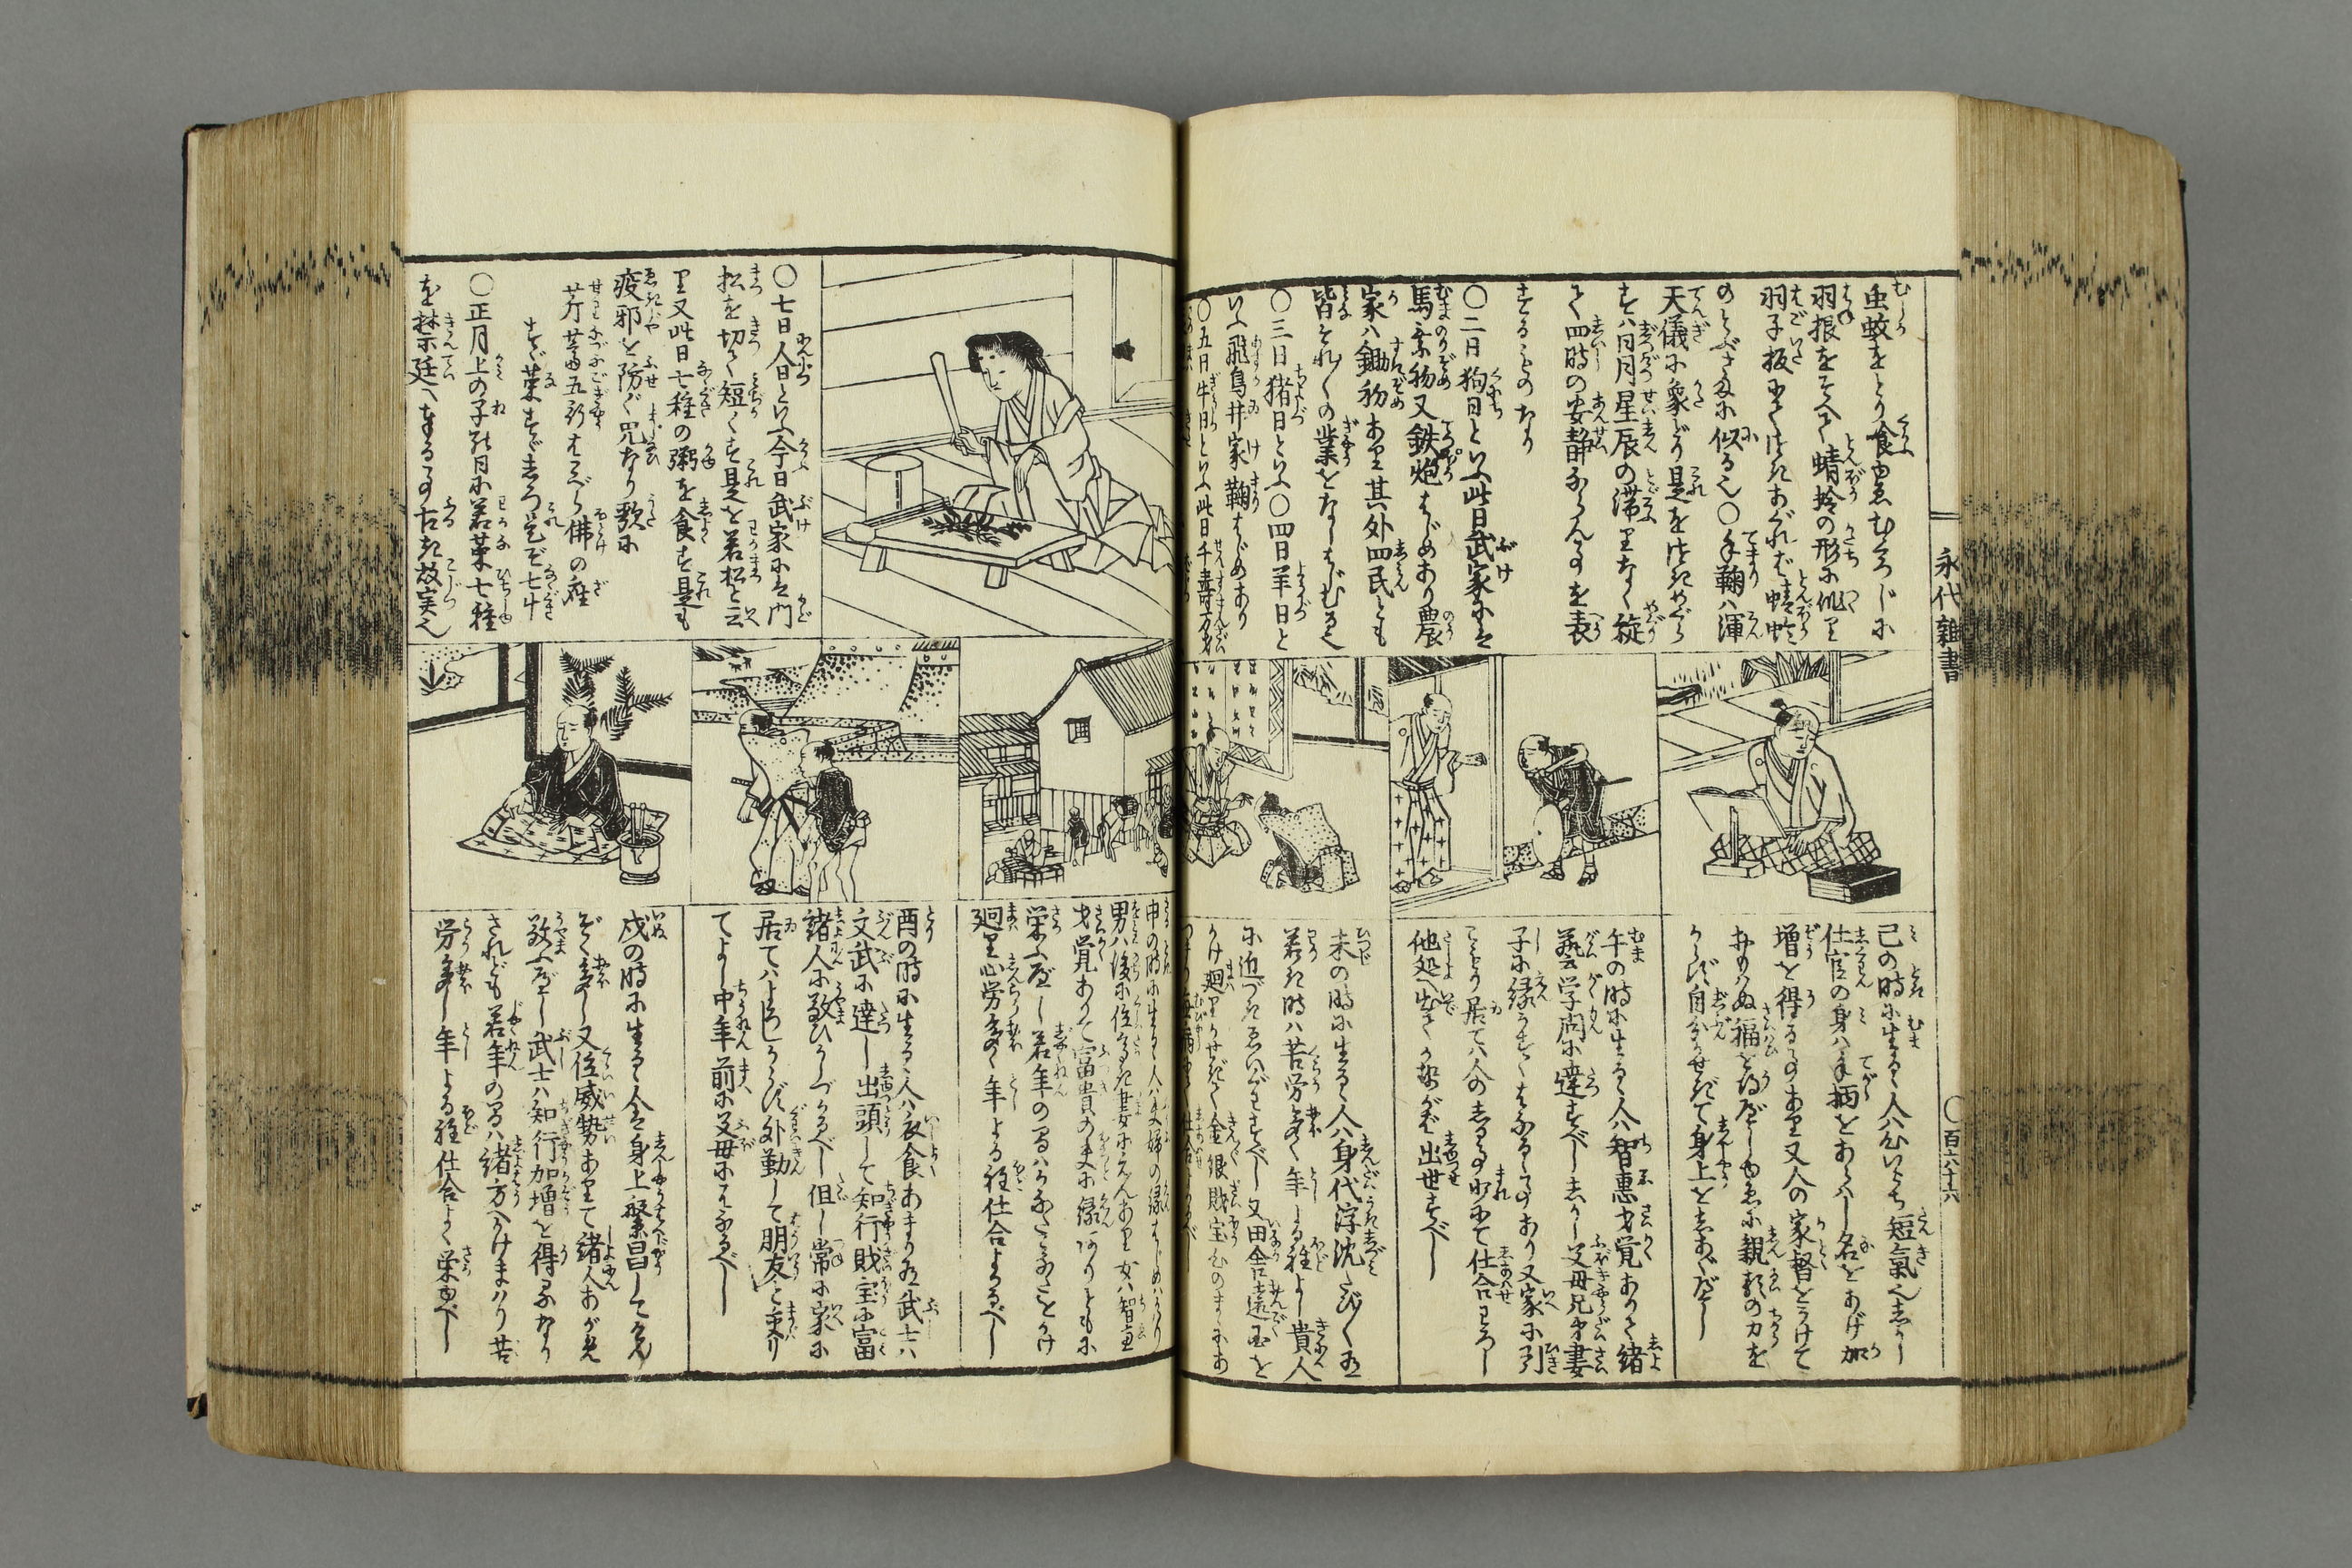 永代雑書
〇百六十六
虫蚊をとり食ゆゑむくろじに
羽根をそへて蜻蛉の形に
羽子板にてつきあぐれば蜻蛉
のとぶさまに似る也〇手鞠ハ渾
天儀に象どり是をつきめぐら
すハ日月星辰の滞りなく旋
て四時の安静ならん事を表
するものなり
〇二日狗日といふ此日武家にハ
馬乗初又鉄炮はじめあり農
家ハ鋤初あり其外四民とも
皆それ〳〵の業をなしはじむる也
〇三日猪日といふ〇四日羊日と
いふ飛鳥井家鞠はじめあり
〇五日牛日といふ此日千壽万才
巳の時に生るゝ人ハいたち短氣也しかし
仕官の身ハ手柄をあらハし名をあげ加
増を得る事あり又人の家督をうけて
おもハぬ福を得べしゆゑに親類の力を
からず自分かせぎて身上をしあぐべし
午の時に生るゝ人ハ智惠才覚ありて諸
藝学問に達すべししかし父母兄弟妻
子に縁うすくはなるゝ事あり又家に引
こもり居てハ人のしる事少にて仕合わろし
他処へ出てかせがば出世すべし
未の時に生るゝ人ハ身代浮沈たび〳〵也
若き時ハ苦労多く年よる程よし貴人
に近づきゑいがをすべし又田舎遠国を
かけ廻りかせぎて金銀財宝心のまゝにあ
〇七日人日といふ今日武家にハ門
松を切て短くす是を若松と云
り又此日七種の粥を食す是も
疫邪を防ぐ咒なり歌に
芹薺五行はこべら佛の座
すゞ菜すゞしろ是ぞ七草
〇正月上の子の日に若菜七種
を禁廷へ奉る事古き故実也
申の時に生るゝ人ハ夫婦の縁はじめハかハり
男ハ後に位高き妻にえんあり女ハ智恵
才覚ありて富貴の夫に縁ありともに
栄ふべし若年の間ハかなたこなたとかけ
廻り心労多く年よる程仕合よろべし
酉の時に生るゝ人ハ衣食あまり有武士ハ
文武に達し出頭して知行財宝に富
諸人に敬ひかしづかるべし但し常に家に
居てハよろしからず外勤して朋友と交り
てよし中年前に父母にはなるべし
戌の時に生るゝ人ハ身上繁昌してゑん
ぞく多し又位威勢ありて諸人あがめ
敬ふべし武士ハ知行加増を得るなり
されども若年の間ハ諸方へかけまハり苦
労多し年よる程仕合よく栄ゆべし